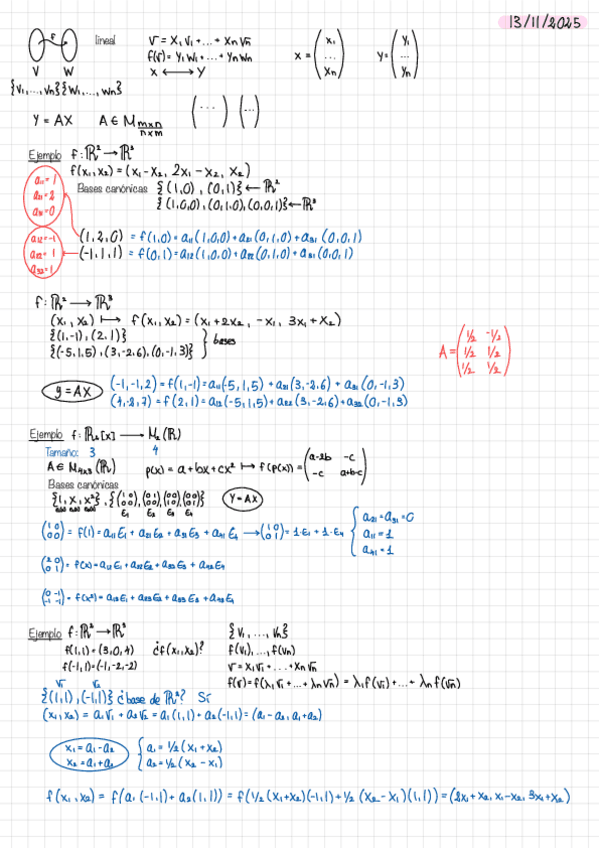 13/11/2025
f
lineal
v̄ = x₁v̄₁ + ... + xₙv̄ₙ
f(v̄) = y₁w̄₁ + ... + yₙw̄ₙ
x ⟷ y
x = (x₁ ... xₙ) y = (y₁ ... yₙ)
V W
{v₁, ..., vₙ} {w₁, ..., wₙ}
(...) (...)
Y = AX A ∈ M m×n
n×m
Ejemplo f: ℝ² → ℝ³
f(x₁, x₂) = (x₁ - x₂, 2x₁ - x₂, x₂)
Bases canónicas {(1,0), (0,1)} ← ℝ²
{(1,0,0), (0,1,0), (0,0,1)} ← ℝ³
a₁₁ = 1
a₂₁ = 2
a₃₁ = 0
(1,2,0) = f(1,0) = a₁₁(1,0,0) + a₂₁(0,1,0) + a₃₁(0,0,1)
a₁₂ = -1
a₂₂ = 1
a₃₂ = 1
(-1,1,1) = f(0,1) = a₁₂(1,0,0) + a₂₂(0,1,0) + a₃₂(0,0,1)
f: ℝ² → ℝ³
(x₁, x₂) ↦ f(x₁, x₂) = (x₁ + 2x₂, -x₁, 3x₁ + x₂)
{(1,-1), (2,1)}
{(-5,1,5), (3,-2,6), (0,-1,3)} bases
A = (1/2 -1/2
1/2 1/2
1/2 1/2)
y = AX
(-1,-1,2) = f(1,-1) = a₁₁(-5,1,5) + a₂₁(3,-2,6) + a₃₁(0,-1,3)
(4,-2,7) = f(2,1) = a₁₂(-5,1,5) + a₂₂(3,-2,6) + a₃₂(0,-1,3)
Ejemplo f: ℝ₂[x] → M₂(ℝ)
Tamaño: 3 4
A ∈ M₄ₓ₃(ℝ) p(x) = a + bx + cx² ↦ f(p(x)) = (a-2b -c
-c a+b-c)
Bases canónicas
{1, x, x²}, {(1 0 0 0), (0 1 0 0), (0 0 1 0), (0 0 0 1)} Y = AX
E₁ E₂ E₃ E₄
(1 0 0 0) = f(1) = a₁₁E₁ + a₂₁E₂ + a₃₁E₃ + a₄₁E₄ → (1 0 0 1) = 1·E₁ + 1·E₄
a₂₁ = a₃₁ = 0
a₁₁ = 1
a₄₁ = 1
(2 0 0 1) = f(x) = a₁₂E₁ + a₂₂E₂ + a₃₂E₃ + a₄₂E₄
(0 -1 -1 -1) = f(x²) = a₁₃E₁ + a₂₃E₂ + a₃₃E₃ + a₄₃E₄
Ejemplo f: ℝ² → ℝ³
f(1,1) = (3,0,4) ¿f(x₁, x₂)?
f(-1,1) = (-1,-2,-2)
{v₁, ..., vₙ}
f(v₁), ..., f(vₙ)
v̄ = x₁v̄₁ + ... + xₙv̄ₙ
f(v̄) = f(λ₁v̄₁ + ... + λₙv̄ₙ) = λ₁f(v̄₁) + ... + λₙf(v̄ₙ)
v̄₁ v̄₂
{(1,1), (-1,1)} ¿base de ℝ²? Sí
(x₁, x₂) = a₁v̄₁ + a₂v̄₂ = a₁(1,1) + a₂(-1,1) = (a₁ - a₂, a₁ + a₂)
x₁ = a₁ - a₂
x₂ = a₁ + a₂
a₁ = 1/2 (x₁ + x₂)
a₂ = 1/2 (x₂ - x₁)
f(x₁, x₂) = f(a₁(-1,1) + a₂(1,1)) = f(1/2(x₁+x₂)(-1,1) + 1/2(x₂-x₁)(1,1)) = (2x₁+x₂, x₁-x₂, 3x₁+x₂)